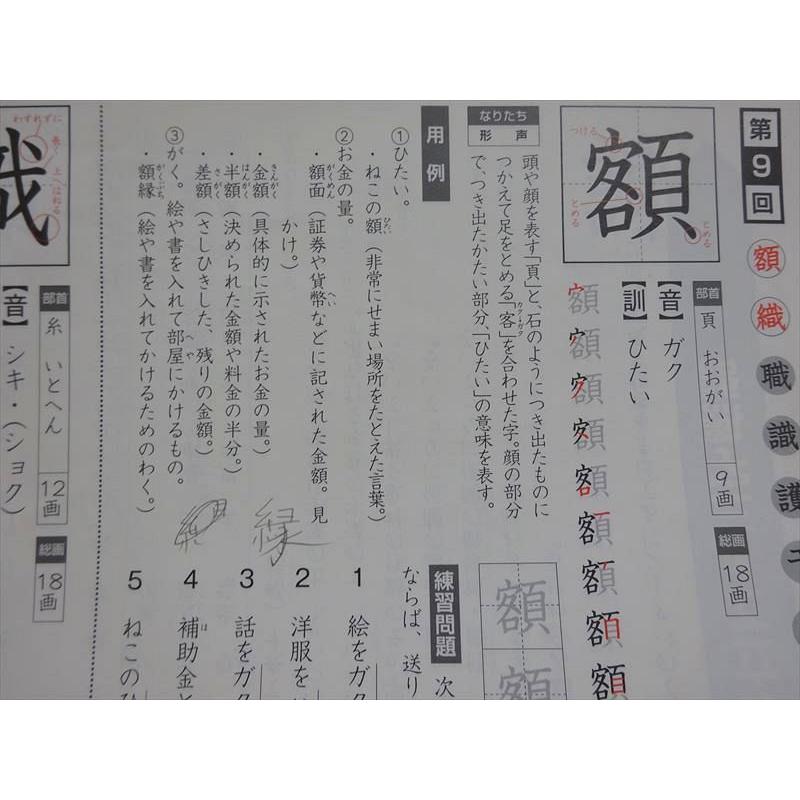 第9回
額
織
職
識
護
額
つける
とめる
とめる
部首 頁 おおがい 9画
総画 18画
【音】ガク
【訓】ひたい
なりたち
形声
頭や顔を表す「頁」と、石のようにつき出たものに
つかえて足をとめる「客」を合わせた字。顔の部分
で、つき出たかたい部分、「ひたい」の意味を表す。
用例
①ひたい。
・ねこの額（非常にせまい場所をたとえた言葉。）
②お金の量。
・額面（証券や貨幣などに記された金額。見
かけ。）
・金額（具体的に示されたお金の量。）
・半額（決められた金額や料金の半分。）
・差額（さしひきした、残りの金額。）
③がく。絵や書を入れて部屋にかけるもの。
・額縁（絵や書を入れてかけるためのわく。）
縁
額
額
練習問題 次
ならば、送り
1 絵をガク
2 洋服を
3 話をガク
4 補助金と
5 ねこのひ
織
わすれずに
長く
上へはねる
部首 糸 いとへん 12画
総画 18画
【音】シキ・（ショク）